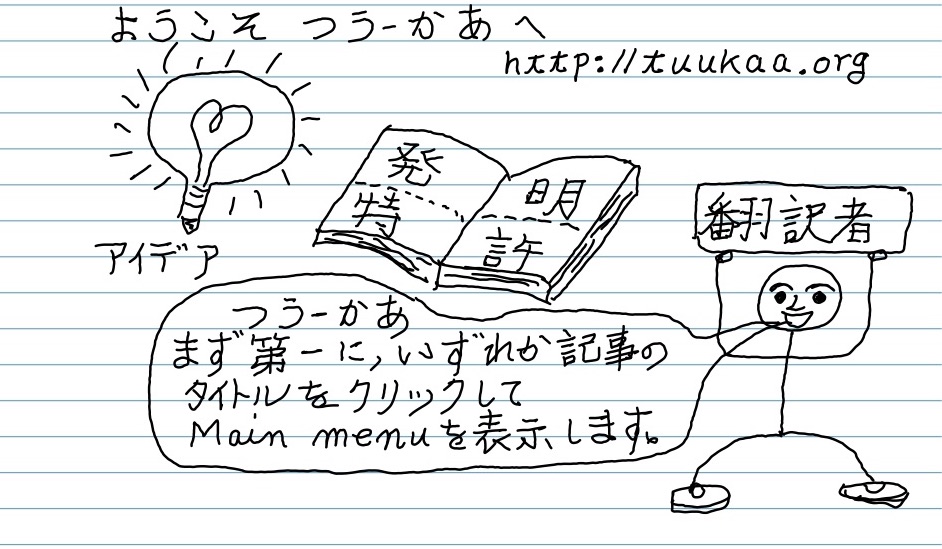 ようこそ つうーかあへ
http://tuukaa.org
発明
特許
アイデア
翻訳者
つうーかあ
まず第一に,いずれか記事の
タイトルをクリックして
Main menuを表示します。